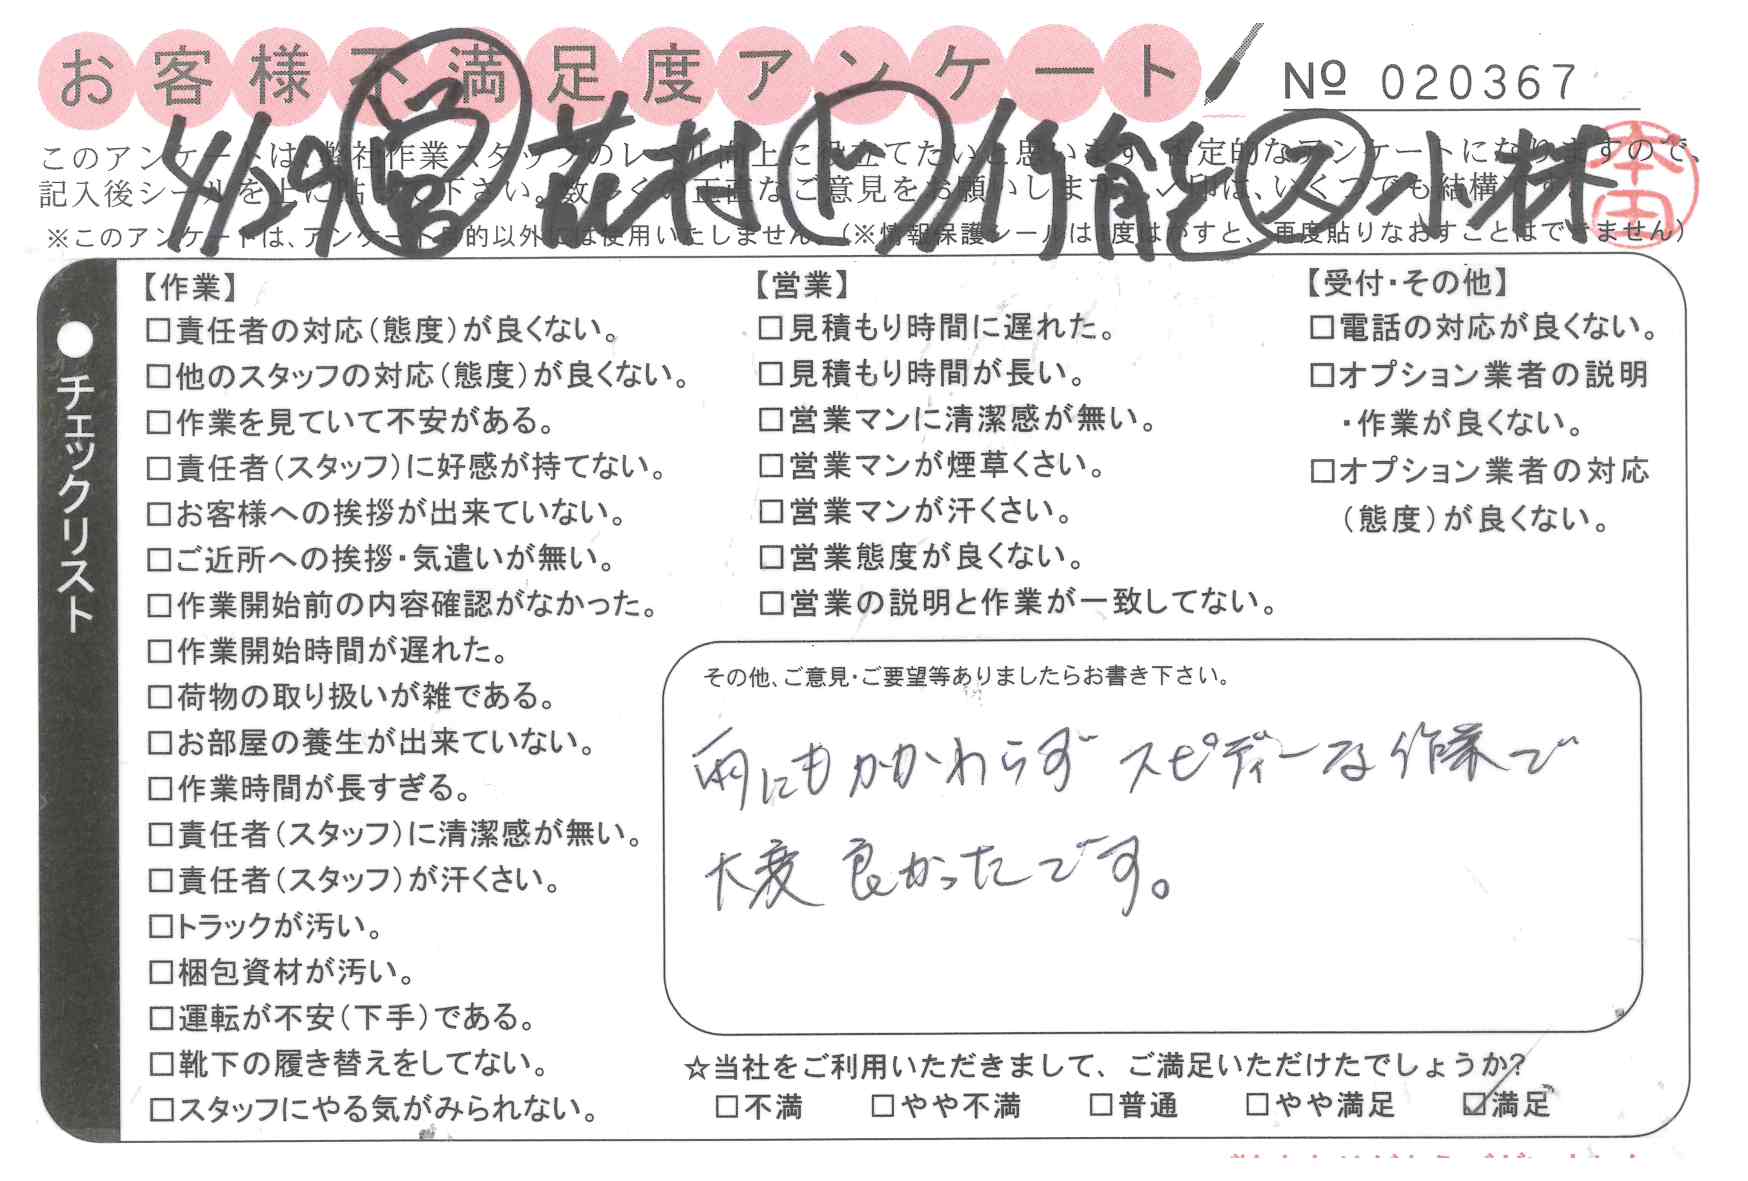 お客様不満足度アンケート
№ 020367
4/29 営 花村 ド 小熊 ス 小林
本田
このアンケートは、弊社作業スタッフのレベル向上に役立てたいと思います。否定的なアンケートになりますので、
記入後シールを上に貼って下さい。数多くの正直なご意見をお願いします。レ印は、いくつでも結構です。
※このアンケートは、アンケート目的以外には使用いたしません。(※情報保護シールは1度はがすと、再度貼りなおすことはできません)
●チェックリスト
【作業】
□責任者の対応(態度)が良くない。
□他のスタッフの対応(態度)が良くない。
□作業を見ていて不安がある。
□責任者(スタッフ)に好感が持てない。
□お客様への挨拶が出来ていない。
□ご近所への挨拶・気遣いが無い。
□作業開始前の内容確認がなかった。
□作業開始時間が遅れた。
□荷物の取り扱いが雑である。
□お部屋の養生が出来ていない。
□作業時間が長すぎる。
□責任者(スタッフ)に清潔感が無い。
□責任者(スタッフ)が汗くさい。
□トラックが汚い。
□梱包資材が汚い。
□運転が不安(下手)である。
□靴下の履き替えをしてない。
□スタッフにやる気がみられない。
【営業】
□見積もり時間に遅れた。
□見積もり時間が長い。
□営業マンに清潔感が無い。
□営業マンが煙草くさい。
□営業マンが汗くさい。
□営業態度が良くない。
□営業の説明と作業が一致してない。
【受付・その他】
□電話の対応が良くない。
□オプション業者の説明
・作業が良くない。
□オプション業者の対応
(態度)が良くない。
その他、ご意見・ご要望等ありましたらお書き下さい。
雨にもかかわらず スピディーな作業で
大変 良かったです。
☆当社をご利用いただきまして、ご満足いただけたでしょうか?
□不満 □やや不満 □普通 □やや満足 ☑満足